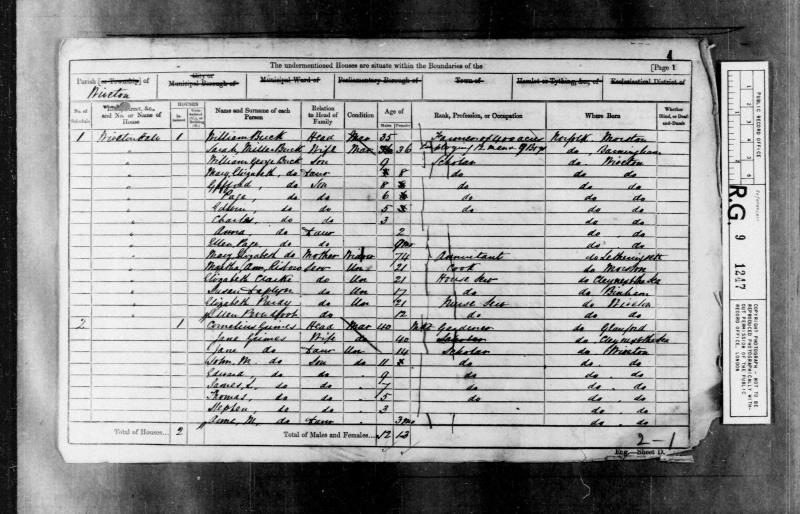 The undermentioned Houses are situate within the Boundaries of the
[Page 1
Parish [or Township] of
City or Municipal Borough of
Municipal Ward of
Parliamentary Borough of
Town of
Hamlet or Tything, &c., of
Ecclesiastical District of
Wiveton
No. of Schedule
Street, &c., and No. or Name of House
HOUSES
Name and Surname of each Person
Relation to Head of Family
Condition
Age of
Males Females
Rank, Profession, or Occupation
Where Born
Whether Blind, or Deaf-and-Dumb
1 Wiveton Hall 1 William Buck Head Mar 35 Farmer of acres Norfolk Morston
Sarah Miller Buck Wife Mar 36 do
William George Buck Son 9 Scholar do Wiveton
Mary Elizabeth do Daur 8 do do do
do Son 8 do do do
Page do do 6 do do do
Edwin do do 5 do do do
Charles do do 3 do do
Anna do Daur 2 do do
Ellen Page do do 9 mo do do
Mary Elizabeth do Mother Widow 74 Annuitant do Letheringsett
Martha Ann Serv Un 21 Cook do Morston
Elizabeth Clarke do Un 21 House Serv do Cley next the Sea
Susan do Un 17 do do Binham
Elizabeth Purdy do Un 21 Nurse Serv do Wiveton
Ellen do 12 do do do
2 1 Cornelius Grimes Head Mar 40 Gardener do Glanford
Jane Grimes Wife do 40 do Cley next the Sea
Jane do Daur Un 14 Scholar do Wiveton
John M. do Son do 11 do do do
Edward do do 9 do do do
James do do 7 do do do
Thomas do do 5 do do do
Stephen do do 3 do do
Anne M. do Daur 3 mo do do
Total of Houses... 2
Total of Males and Females... 12 13
2-1
Eng.—Sheet D.
PUBLIC RECORD OFFICE
Reference:-
R.G. 9 1247
COPYRIGHT PHOTOGRAPH - NOT TO BE REPRODUCED PHOTOGRAPHICALLY WITHOUT PERMISSION OF THE PUBLIC RECORD OFFICE, LONDON